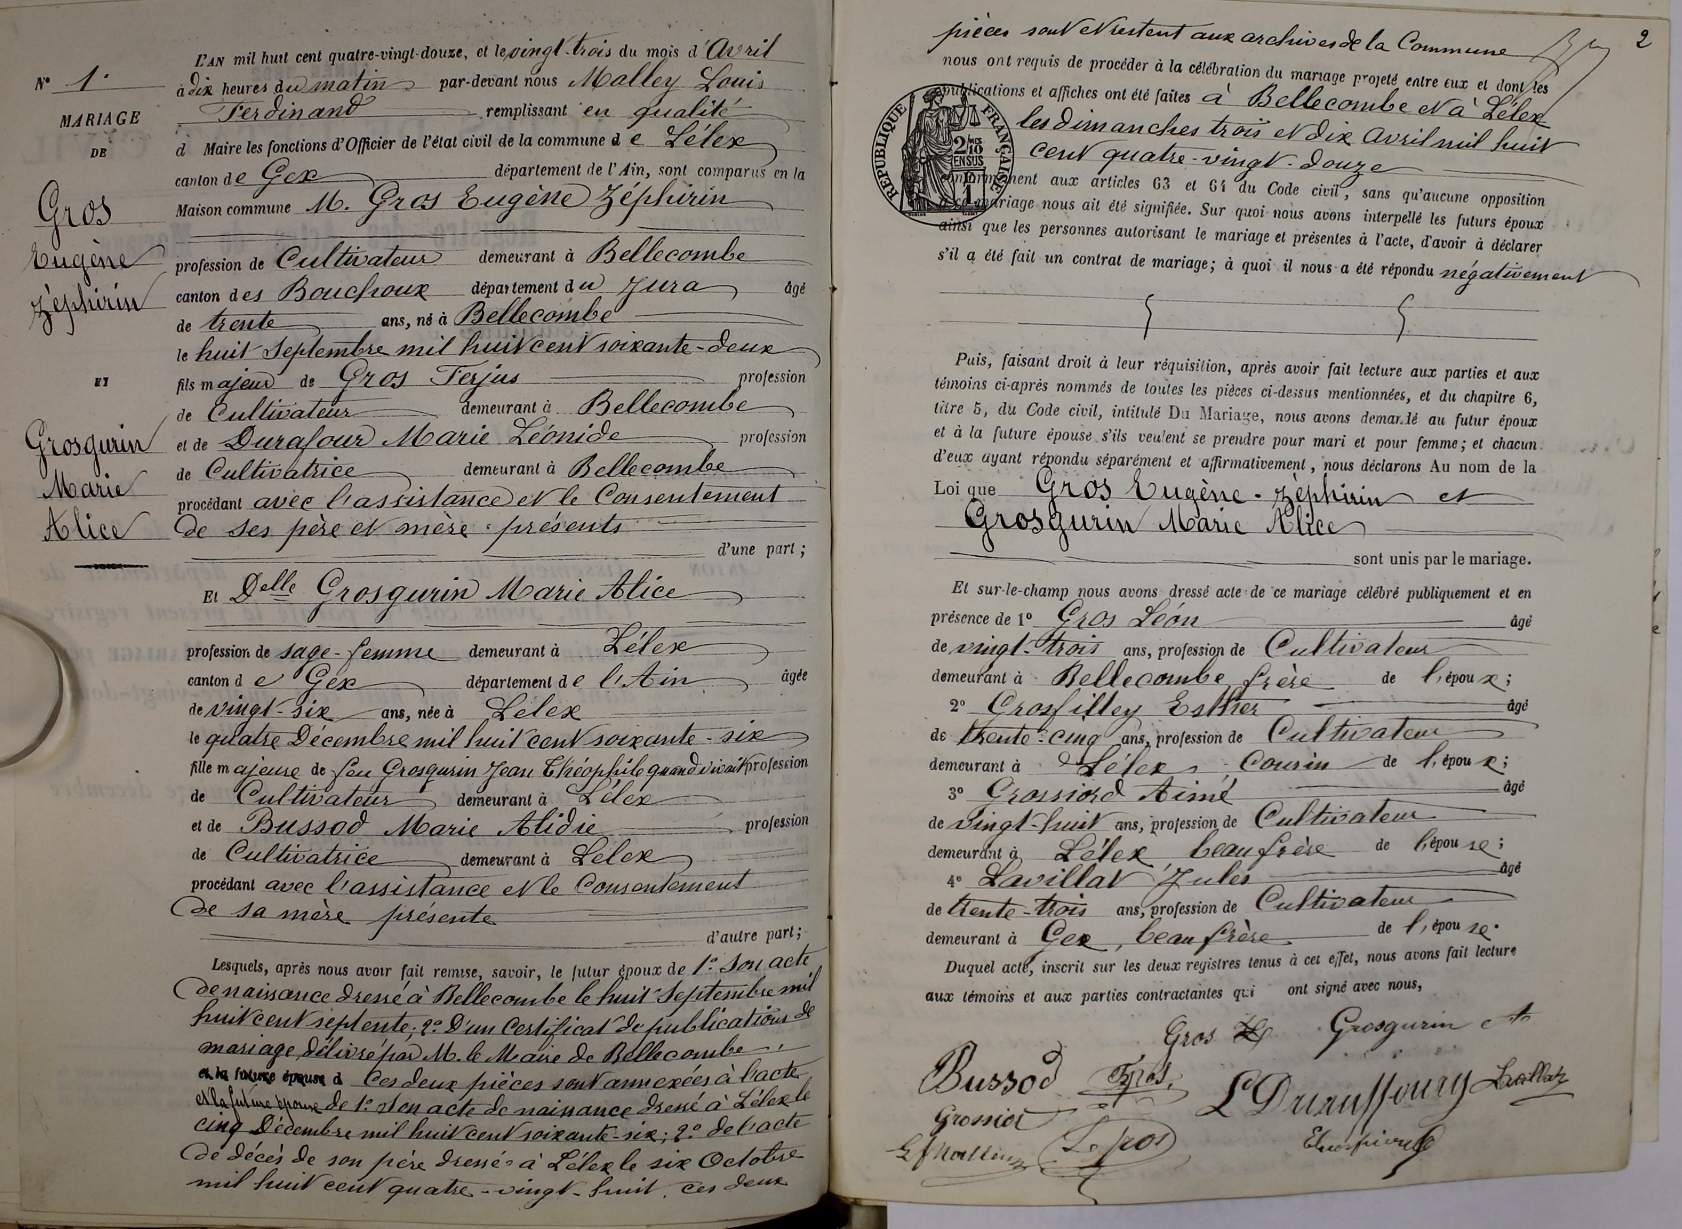 L'AN mil huit cent quatre-vingt-douze, et le vingt-trois du mois d'Avril
N° 1.
à dix heures du matin par-devant nous Malley Louis
Ferdinand remplissant en qualité
MARIAGE
DE
d Maire les fonctions d'Officier de l'état civil de la commune de Lélex
canton de Gex département de l'Ain, sont comparus en la
Maison commune M. Gros Eugène Zéphirin
Gros
Eugène
Zéphirin
profession de Cultivateur demeurant à Bellecombe
canton des Bouchoux département du Jura âgé
de trente ans, né à Bellecombe
le huit Septembre mil huit cent soixante-deux
ET
fils majeur de Gros Ferjus profession
de Cultivateur demeurant à Bellecombe
Grosgurin
Marie
Alice
et de Durafour Marie Léonide profession
de Cultivatrice demeurant à Bellecombe
procédant avec l'assistance et le Consentement
de ses père et mère présents
d'une part;
Et Delle Grosgurin Marie Alice
profession de sage-femme demeurant à Lélex
canton de Gex département de l'Ain âgée
de vingt-six ans, née à Lélex
le quatre Décembre mil huit cent soixante-six
fille majeure de feu Grosgurin Jean Théophile quand vivait profession
de Cultivateur demeurant à Lélex
et de Bussod Marie Alidie profession
de Cultivatrice demeurant à Lélex
procédant avec l'assistance et le Consentement
de sa mère présente
d'autre part;
Lesquels, après nous avoir fait remise, savoir, le futur époux de 1° Son acte
de naissance dressé à Bellecombe le huit Septembre mil
huit cent septente; 2° D'un Certificat de publications de
mariage délivré par M. le Maire de Bellecombe
et la future épouse d Ces deux pièces sont annexées à l'acte
et la future épouse de 1° Son acte de naissance dressé à Lélex le
cinq Décembre mil huit cent soixante-six; 2° de l'acte
de décès de son père dressé à Lélex le six Octobre
mil huit cent quatre-vingt-huit. Ces deux
2
pièces sont et restent aux archives de la Commune
nous ont requis de procéder à la célébration du mariage projeté entre eux et dont les
publications et affiches ont été faites à Bellecombe et à Lélex
les dimanches trois et dix Avril mil huit
cent quatre-vingt-douze
RÉPUBLIQUE FRANÇAISE
2/10 EN SUS
conformément aux articles 63 et 64 du Code civil, sans qu'aucune opposition
à ce mariage nous ait été signifiée. Sur quoi nous avons interpellé les futurs époux
ainsi que les personnes autorisant le mariage et présentes à l'acte, d'avoir à déclarer
s'il a été fait un contrat de mariage; à quoi il nous a été répondu négativement
Puis, faisant droit à leur réquisition, après avoir fait lecture aux parties et aux
témoins ci-après nommés de toutes les pièces ci-dessus mentionnées, et du chapitre 6,
titre 5, du Code civil, intitulé Du Mariage, nous avons demandé au futur époux
et à la future épouse s'ils veulent se prendre pour mari et pour femme; et chacun
d'eux ayant répondu séparément et affirmativement, nous déclarons Au nom de la
Loi que Gros Eugène-Zéphirin et
Grosgurin Marie Alice
sont unis par le mariage.
Et sur-le-champ nous avons dressé acte de ce mariage célébré publiquement et en
présence de 1° Gros Léon âgé
de vingt-trois ans, profession de Cultivateur
demeurant à Bellecombe frère de l'époux;
2° Grosfilley Esther âgé
de trente-cinq ans, profession de Cultivateur
demeurant à Lélex, Cousin de l'époux;
3° Grossiord Aimé âgé
de vingt-huit ans, profession de Cultivateur
demeurant à Lélex, beau frère de l'épouse;
4° Lavillat Jules âgé
de trente-trois ans, profession de Cultivateur
demeurant à Gex, beau frère de l'épouse.
Duquel acte, inscrit sur les deux registres tenus à cet effet, nous avons fait lecture
aux témoins et aux parties contractantes qui ont signé avec nous,
Gros Grosgurin
Bussod Gros Lavillat